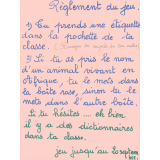 Règlement du jeu.
1) Tu prends une étiquette
dans la pochette de ta
classe.
2) Si tu as pris le nom
d'un animal vivant en
Afrique, tu le mets dans
la boîte rose, sinon tu le
mets dans l'autre boîte.
Si tu hésites... eh bien
il y a des dictionnaires
dans ta classe.
jeu jusqu'au